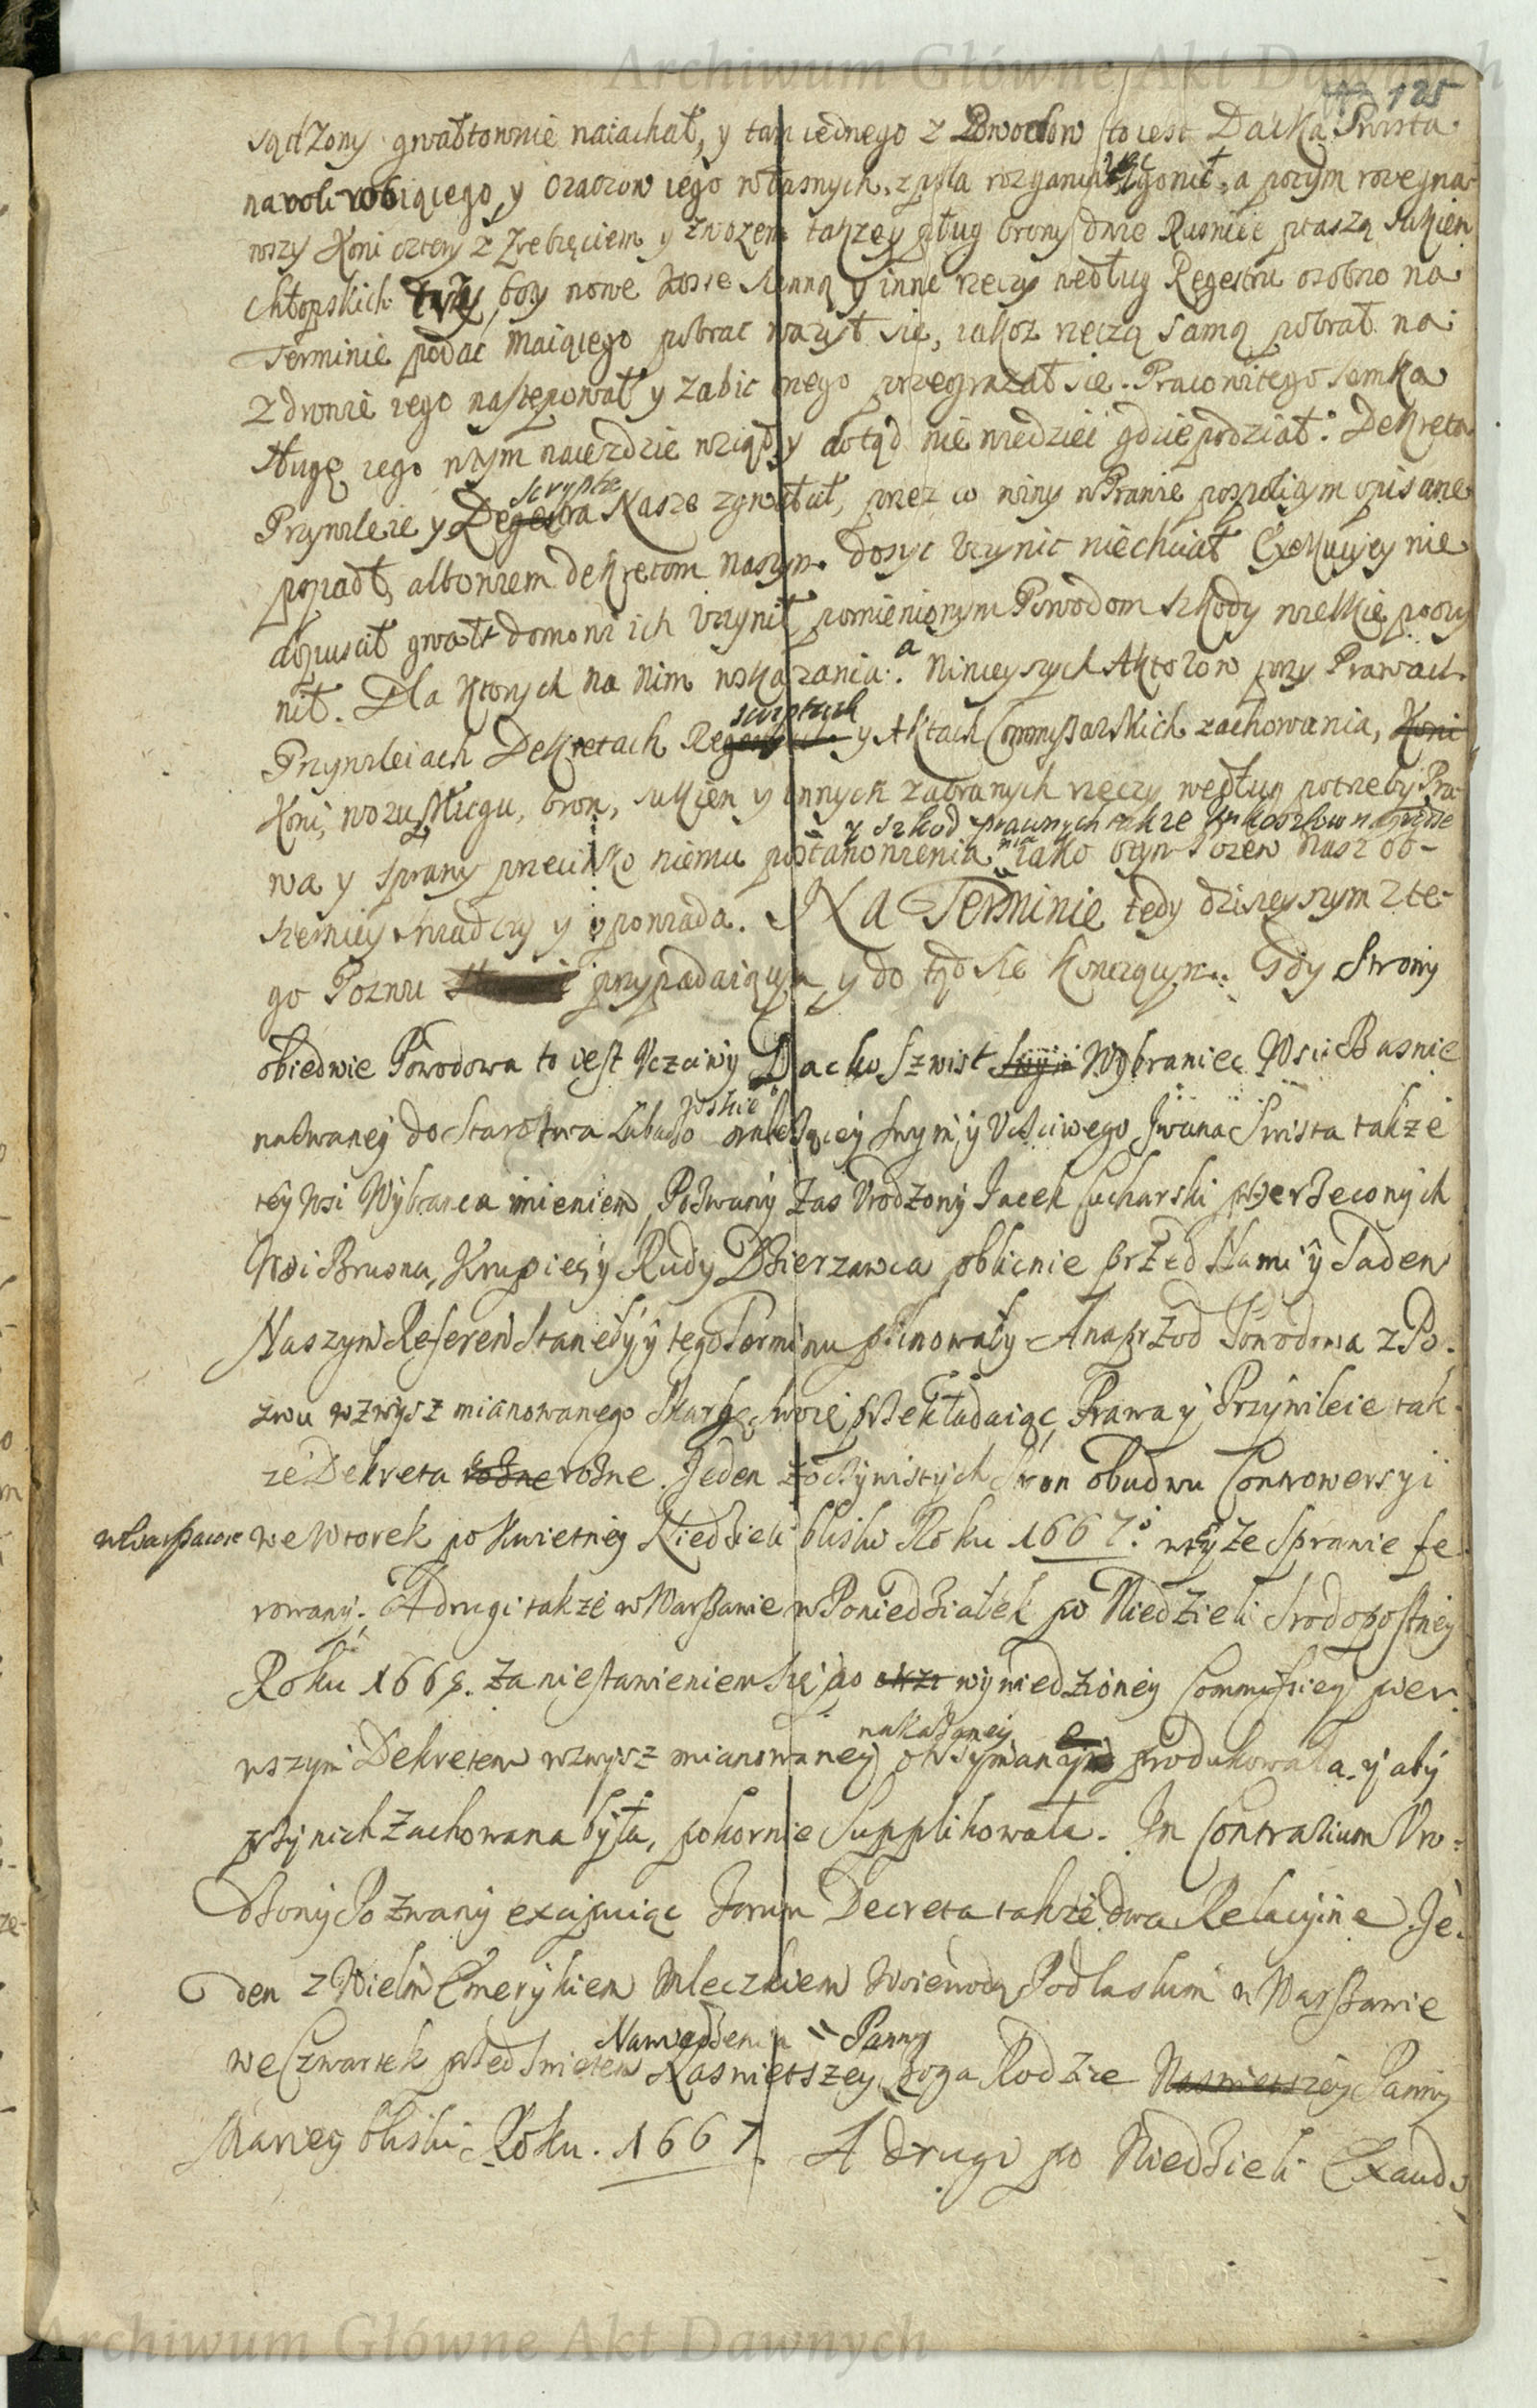 Archiwum Główne Akt Dawnych
125
sądzony gwałtownie naiachał, y tam iednego z Powodow to iest Dacka Swista
na roli robiącego, y oraczow iego własnych, z pola rozganiał zgonił, a potym rozegna-
wszy Koni cztery z Zrebięciem y z wozem takze y pług brony dwie Rusnice ptaszą sukien
Chłopskich trzy, boty nowe kosse sienną y inne rzeczy według Regestru osobno na
Terminie podać maiącego pobrac ważył sie, iakoz rzeczą samą pobrał na
zdrowie iego następował y zabic onego przegrazał sie. Pracowitego Semka
sługę iego w tym naieżdzie wziął y dotąd nie wiedziei gdzie podział. Dekreta
scrypta
Przywileie y Degestra Nasze zgwałcił, przez co winy w Prawie pospolitym opisane
popadł, albowiem dekretom naszym dosyc uczynic niechciał Exekucyey nie
dopuscił gwałt domowi ich uczynił pomienionym Powodom szkody wielkie poczy
nił. Dla ktorych na nim wskazania: a ninieyszych Aktorow przy Prawach
scriptach
Przywileiach Dekretach Regestrach y Aktach Commyssarskich zachowania, Koni
Koni, wozu, Pługu, bron, sukien y innych zabranych rzeczy według potrzeby Pra-
y szkod prawnych takze
wa y sprawy przeciwko niemu postanowienia iako ten Pozew nasz ob-
szerniey swiadczy y opowiada. Na Terminie tedy dzisieyszym z te-
go Pozwu przypadaiącym y do tąd sie konczącym. Gdy Strony
obiedwie Powodowa to iest Uczciwy Dacko Szwist swym Wybraniec Wsi Basnie
nazwaney do Starostwa Lubaczowskie należącey swym, y Uczciwego Jwana Swista takze
tey Wsi Wybranca imieniem, Pozwany zas Urodzony Jacek Sucharski przerzeconych
Wsi Brusna, Krupiec, y Rudy Dzierzawca oblicnie przed Nami y Sadem
Naszym Referen Staneły, y tego Terminu pilnowały. A naprzod Powodowa z Po-
zwu wzwysz mianowanego Skargę swoię przekładaiąc, Prawa y Przywileie tak-
ze Dekreta rożne rożne. Jeden z oczywistych stron obudwu Controwersyi
w Warszawie we Wtorek po Kwietniey Niedzieli blisko Roku 1667. w teyze Sprawie fe-
rowany. A drugi takze w Warszawie w Poniedziałek po Niedzieli Srodopostney
Roku 1668. za niestawieniem się po wywiedzioney Commissiey pier-
nakazaney
wszym Dekretem wzwysz mianowaney otrzymane produkowała. y aby
przy nich zachowana była, pokornie Supplikowała. In Contrarium Uro-
dzony Pozwany excypuiąc Forum Decreta takze dwa Relacyine. Je-
den z Wielm Emerykiem Mleczkiem Woiewodą Podlaskim w Warszawie
Nawiedzenia Panny
we Czwartek przed Swietem Naswietszey Boga Rodzice Naswietszey Panny
Maryey blisko Roku. 1667. A drugi po Niedzieli Exaudi
Archiwum Główne Akt Dawnych